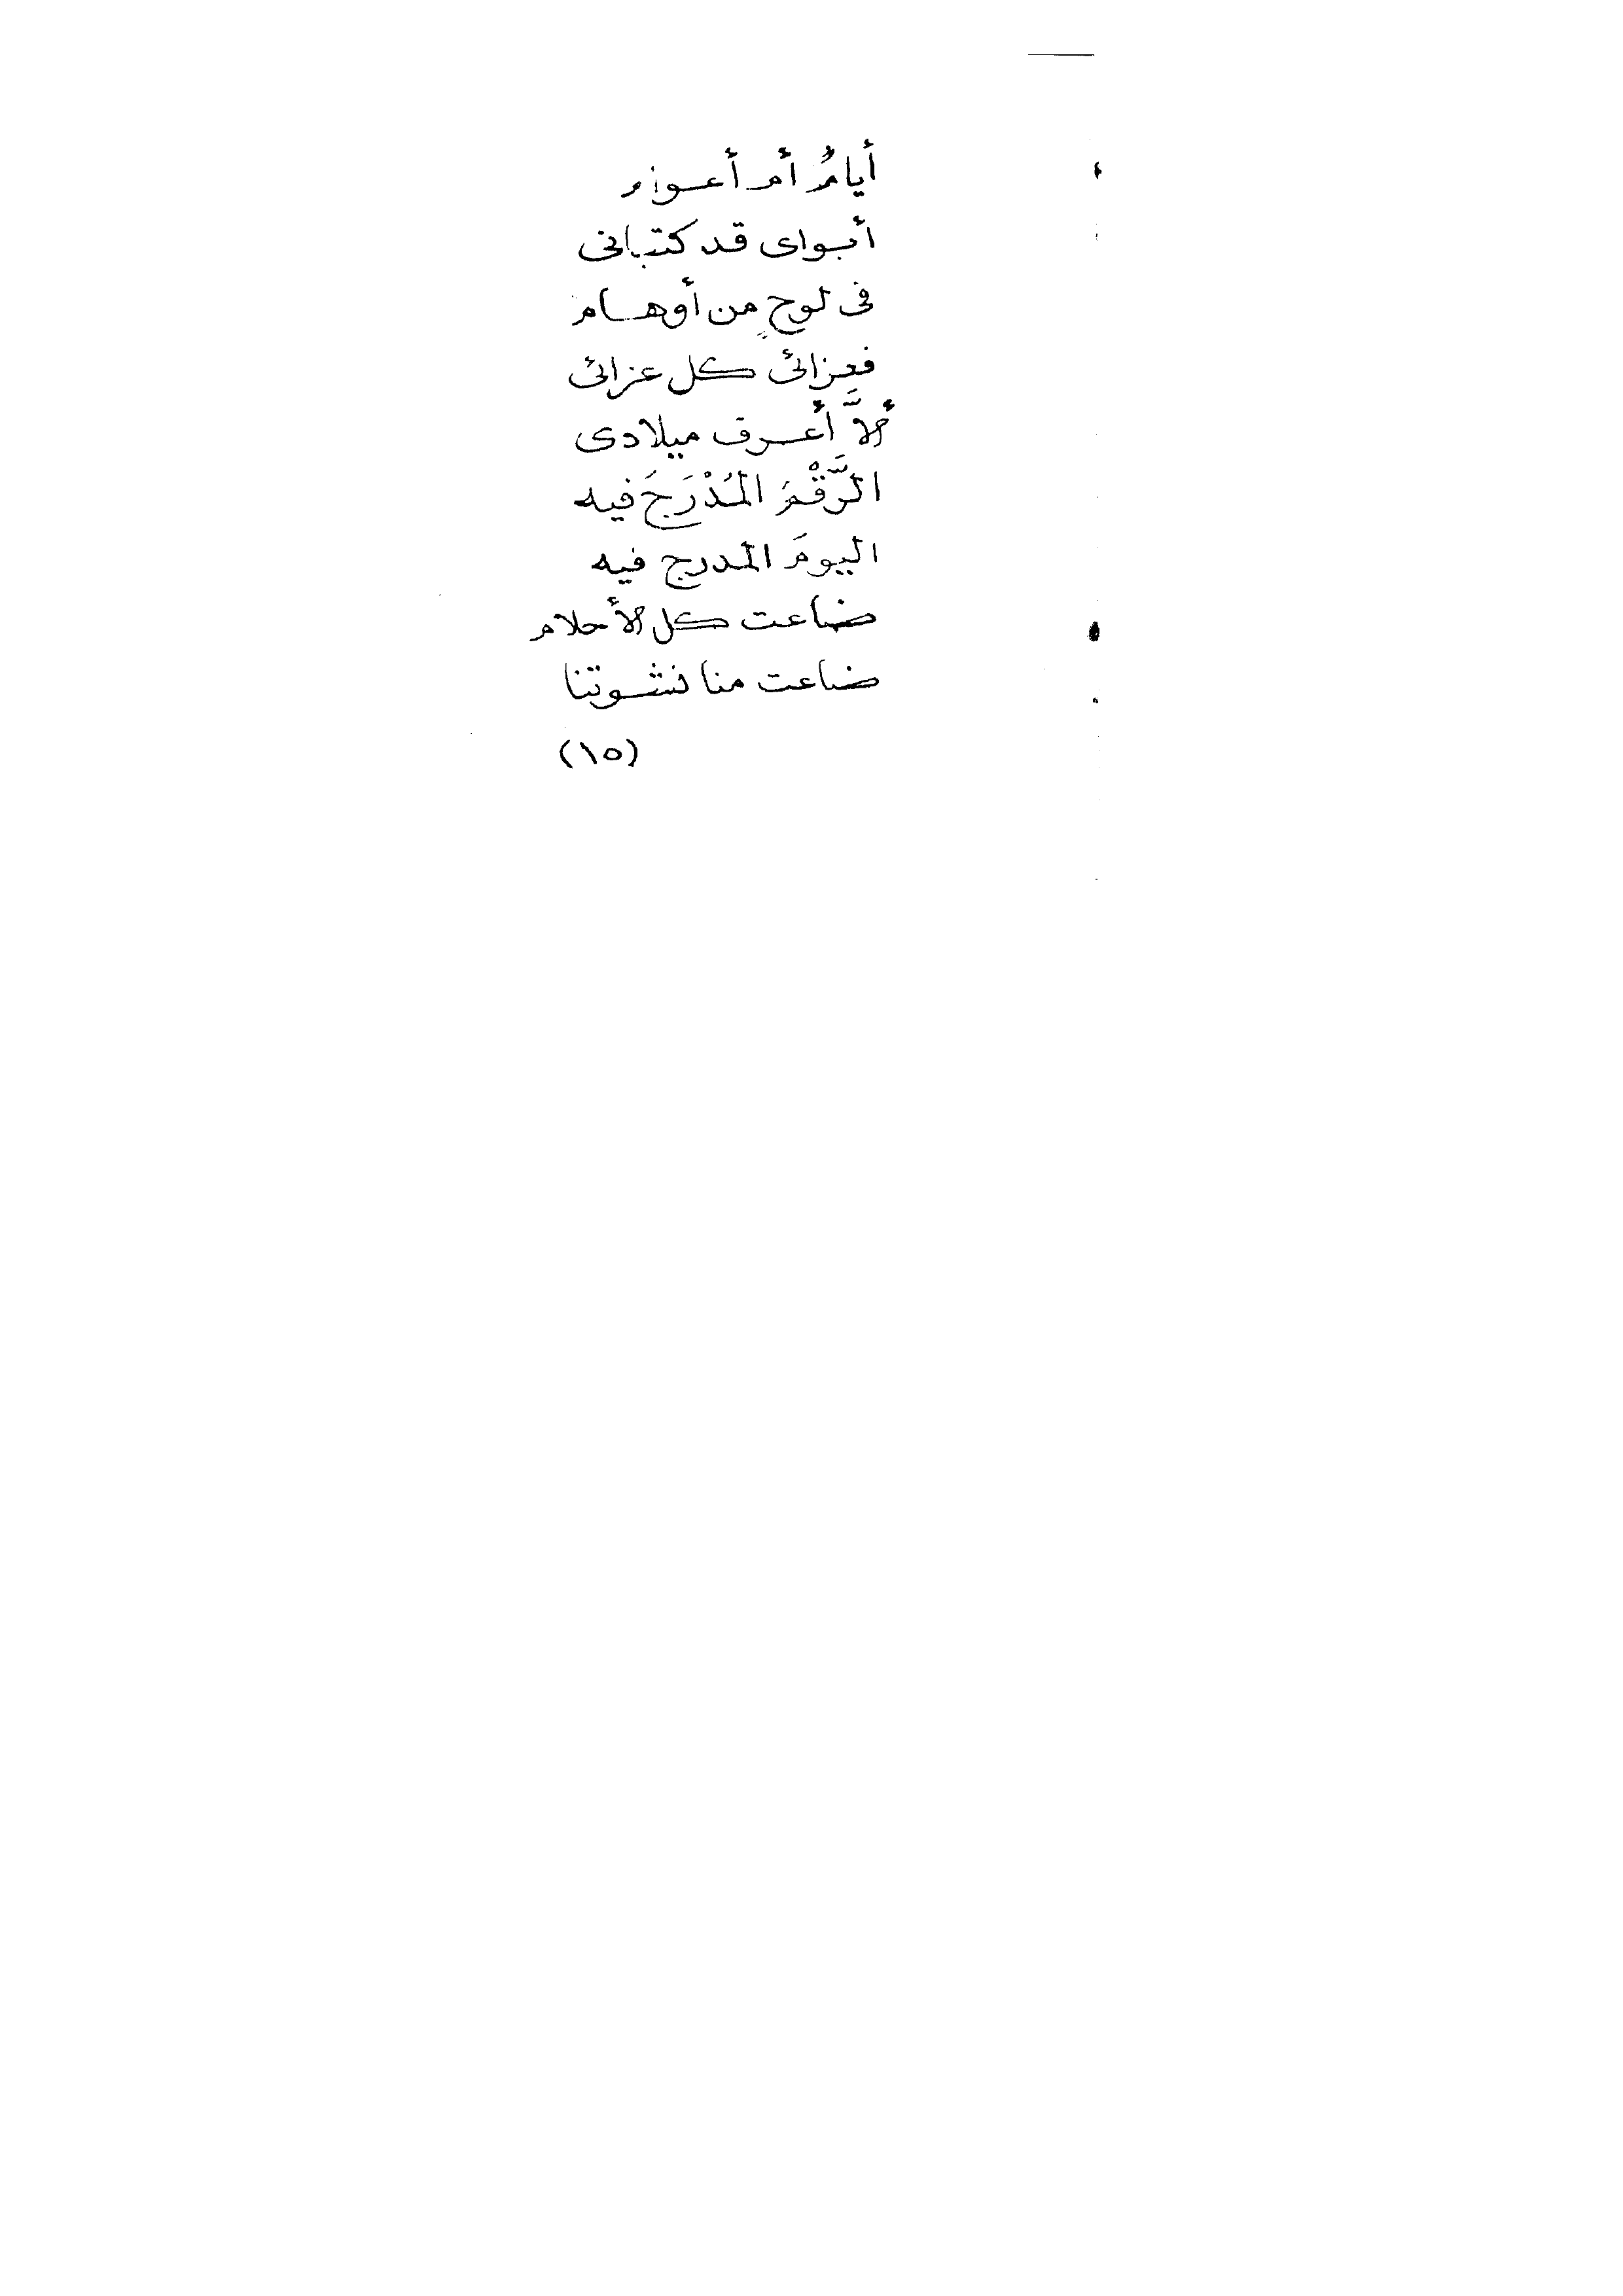 أيامٌ أم أعوام
أبواى قد كتبانى
فى لوحٍ من أوهام
فعزائى كل عزائى
ألاَّ أعرف ميلادى
الرَّقْمَ المُدْرَجَ فيه
اليومَ المدرج فيه
ضاعت كل الأحلام
ضاعت منا نشوتنا
(١٥)